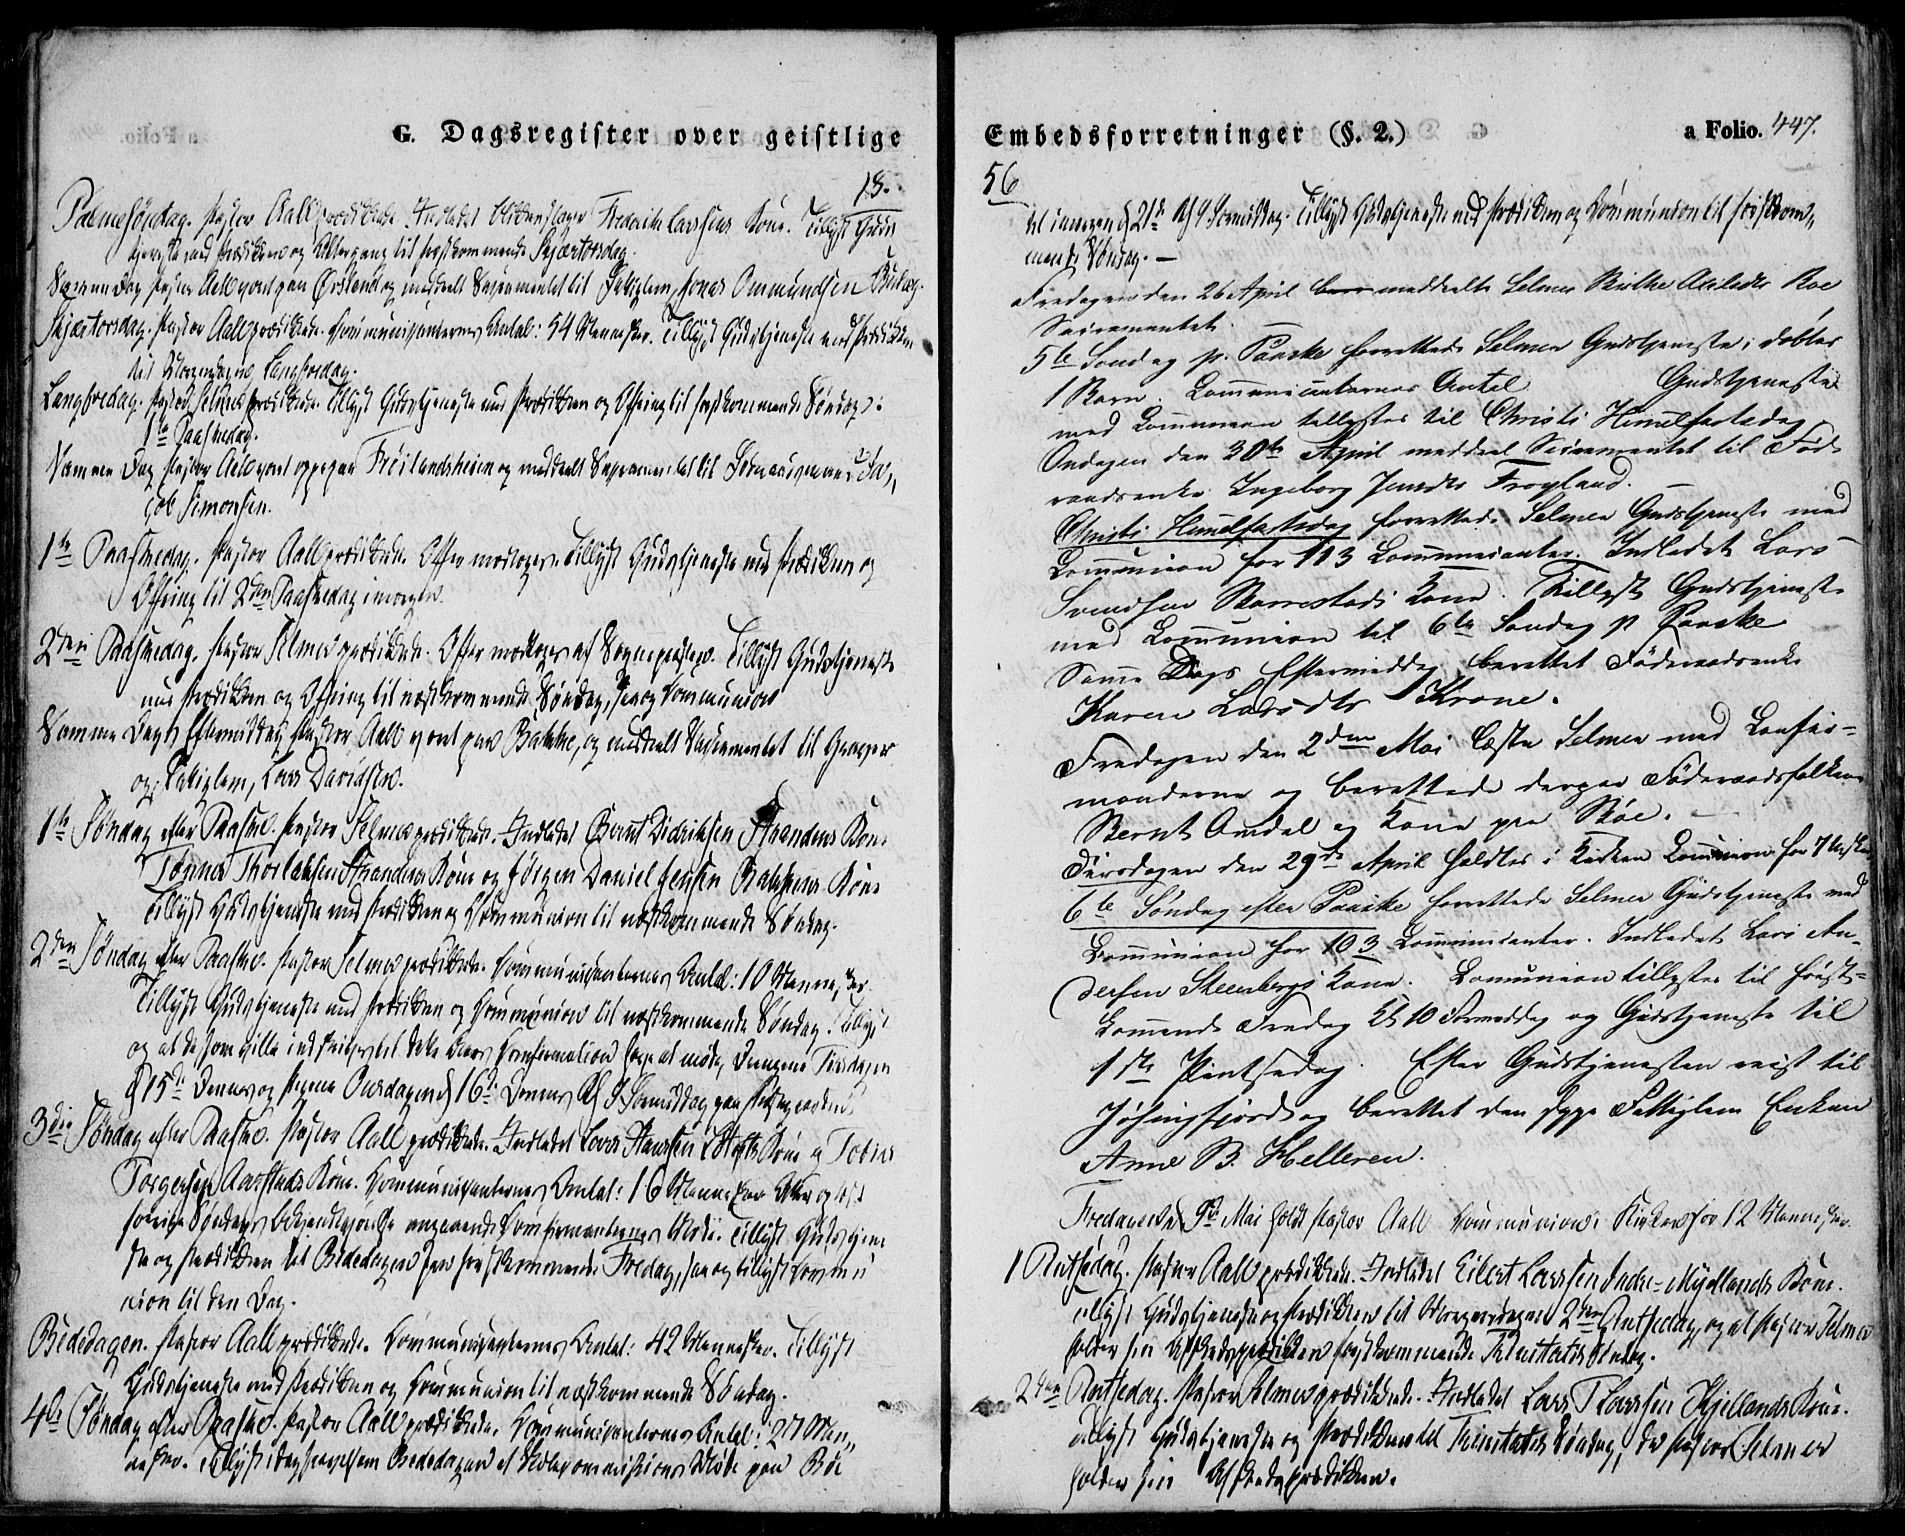 G. Dagsregister over geistlige
18.
Palmesøndag. Pastor Aall prædikede. Indledet Fredrik Larssens Kone. Tillyst Guds
tjeneste med Prædiken og Altergang til førstkommende Skjærtorsdag.
Samme Dag Pastor Aall var paa Ørsland og meddeelt Sacramentet til Fattiglem, Jonas Ommundsen
Skjærtorsdag. Pastor Aall prædikede. Communicanternes Antal: 54 Mennesker. Tillyst Gudstjeneste med Prædiken
til Morgendagen Langfredag.
Langfredag. Pastor Selmer prædikede. Tillyst Gudstjeneste med Prædiken og Ofring til førstkommende Søndag:
1te Paaskedag.
Samme Dag Pastor Aall var oppe paa Frøilandsheien og meddeelt Sacramentet til Ja-
cob Simonsen.
1te Paaskedag. Pastor Aall prædikede. Offer modtoges. Tillyst Gudstjeneste med Prædiken og
Ofring til 2den Paaskedag imorgen.
2den Paaskedag. Pastor Selmer prædikede. Offer modtoges af Sognepresten. Tillyst Gudstjeneste
med Prædiken og Ofring til næstkommende Søndag, saa og Communion
Samme Dags Eftermiddag Pastor Aall var paa Bakke, og meddeelt Sacramentet til
og Fattiglem, Lars Davidsen.
1te Søndag efter Paaske. Pastor Selmer prædikede. Indledet Bernt Didriksen Strandens Kone
Tønnes Thorlaksen Strandens Kone og Jörgen Daniel Jensen Bakkens Kone
Tillyst Gudstjeneste med Prædiken og Communion til næstkommende Søndag.
2den Søndag efter Paaske. Pastor Selmer prædikede. Communicanternes Antal: 10 Mennesker.
Tillyst Gudstjeneste med Prædiken og Communion til næstkommende Søndag. Tillyst
og at de som ville indskrives til dette Aars Confirmation have at møde, Drengene Tirsdagen
d 15de Dennes og Pigerne Onsdagen d 16de Dennes Kl 9 Formiddag paa Præstegaarden.
3die Søndag efter Paaske. Pastor Aall prædikede. Indledet Lars Hanssen Kone og Tobias
Torgersen Aarstads Kone. Communicanternes Antal: 16 Mennesker
forrige Søndags Bekjendtgjørelse angaaende Confirmanternes Møde. Tillyst Gudstjene
ste og Prædiken til Bededagen paa førstkommende Fredag, saa og tillyst Commu
nion til den Dag.
Bededagen. Pastor Aall prædikede. Communicanternes Antal: 42 Mennesker. Tillyst
Gudstjeneste med Prædiken og Communion til næstkommende Søndag.
4de Søndag efter Paaske. Pastor Aall prædikede. Communicanternes Antal: 27 Men-
nesker. Tillyst idag saavelsom Bededagen et Skolecommissions Møde paa Röe
Embedsforretninger (§. 2.)
a Folio. 447.
56
til imorgen d 21de Kl 9 Formiddag. Tillyst Gudstjeneste med Prædiken og Communion til førstkom-
mende Søndag. —
Fredagen den 26 April meddeelte Selmer Roe
Sacramentet. —
5te Søndag p. Paaske forrettede Selmer Gudstjeneste; døbtes
1 Barn. Communicanternes Antal Gudstjeneste
med Communion tillystes til Christi Himelfartsdag
Onsdagen den 30te April meddeel Sacramentet til Føde-
raadsenke Ingeborg Jensdtr Frøyland. —
Christi Himelfartsdag forrettede Selmer Gudstjeneste med
Communion for 113 Communicanter. Indledet Lars
Svendsen Barrestads Kone. Tillyst Gudstjeneste
med Communion til 6te Søndag p Paaske
Same Dags Eftermiddag berettet Föderaadsenke
Karen Larsdtr Krone.
Fredagen den 2den Mai læste Selmer med Confir-
manderne og berettede derpaa Föderaadsfolkene
Bernt Amdal og Kone paa Röe. —
Tirsdagen den 29de April holdtes i Kirken Communion for 7 Mennesker
6te Søndag efter Paaske forrettede Selmer Gudstjeneste med
Communion for 103 Communicanter. Indledet Lars An-
dersen Steenbergs Kone. Comunion tillystes til først-
kommende Fredag Kl 10 Formiddag og Gudstjeneste til
1ste Pintsedag. Efter Gudstjenesten reist til
Jøssingfjord og berettet den syge Fattiglem Enken
Anne B. Helleren.
Fredagen d 9de Mai holdt Pastor Aall Communion i Kirken for 12 Mennesker.
1 Pintsedag. Pastor Aall prædikede. Indledet Eilert Larssen Indre-Mydlands Kone.
tillyst Gudstjeneste og Prædiken til Morgendagen 2den Pintsedag, og at Pastor Selmer
holder sin Afskedsprædiken førstkommende Trinitatis Søndag.
2den Pintsedag. Pastor Selmer prædikede. Indledet Lars T Larssen Skjellands Kone.
tillyst Gudstjeneste og Prædiken til Trinitatis Søndag, da Pastor Selmer
holder sin Afskedsprædiken.